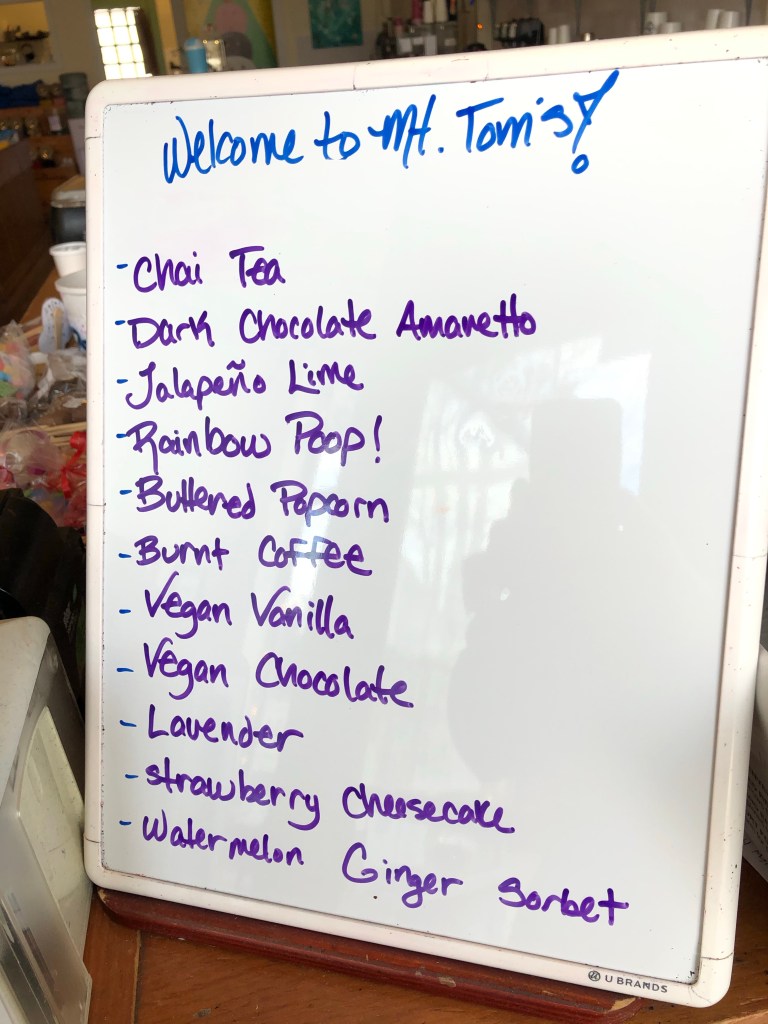 Welcome to Mt. Tom's!
- Chai Tea
- Dark Chocolate Amaretto
- Jalapeño Lime
- Rainbow Poop!
- Buttered Popcorn
- Burnt Coffee
- Vegan Vanilla
- Vegan Chocolate
- Lavender
- Strawberry Cheesecake
- Watermelon Ginger Sorbet
U BRANDS